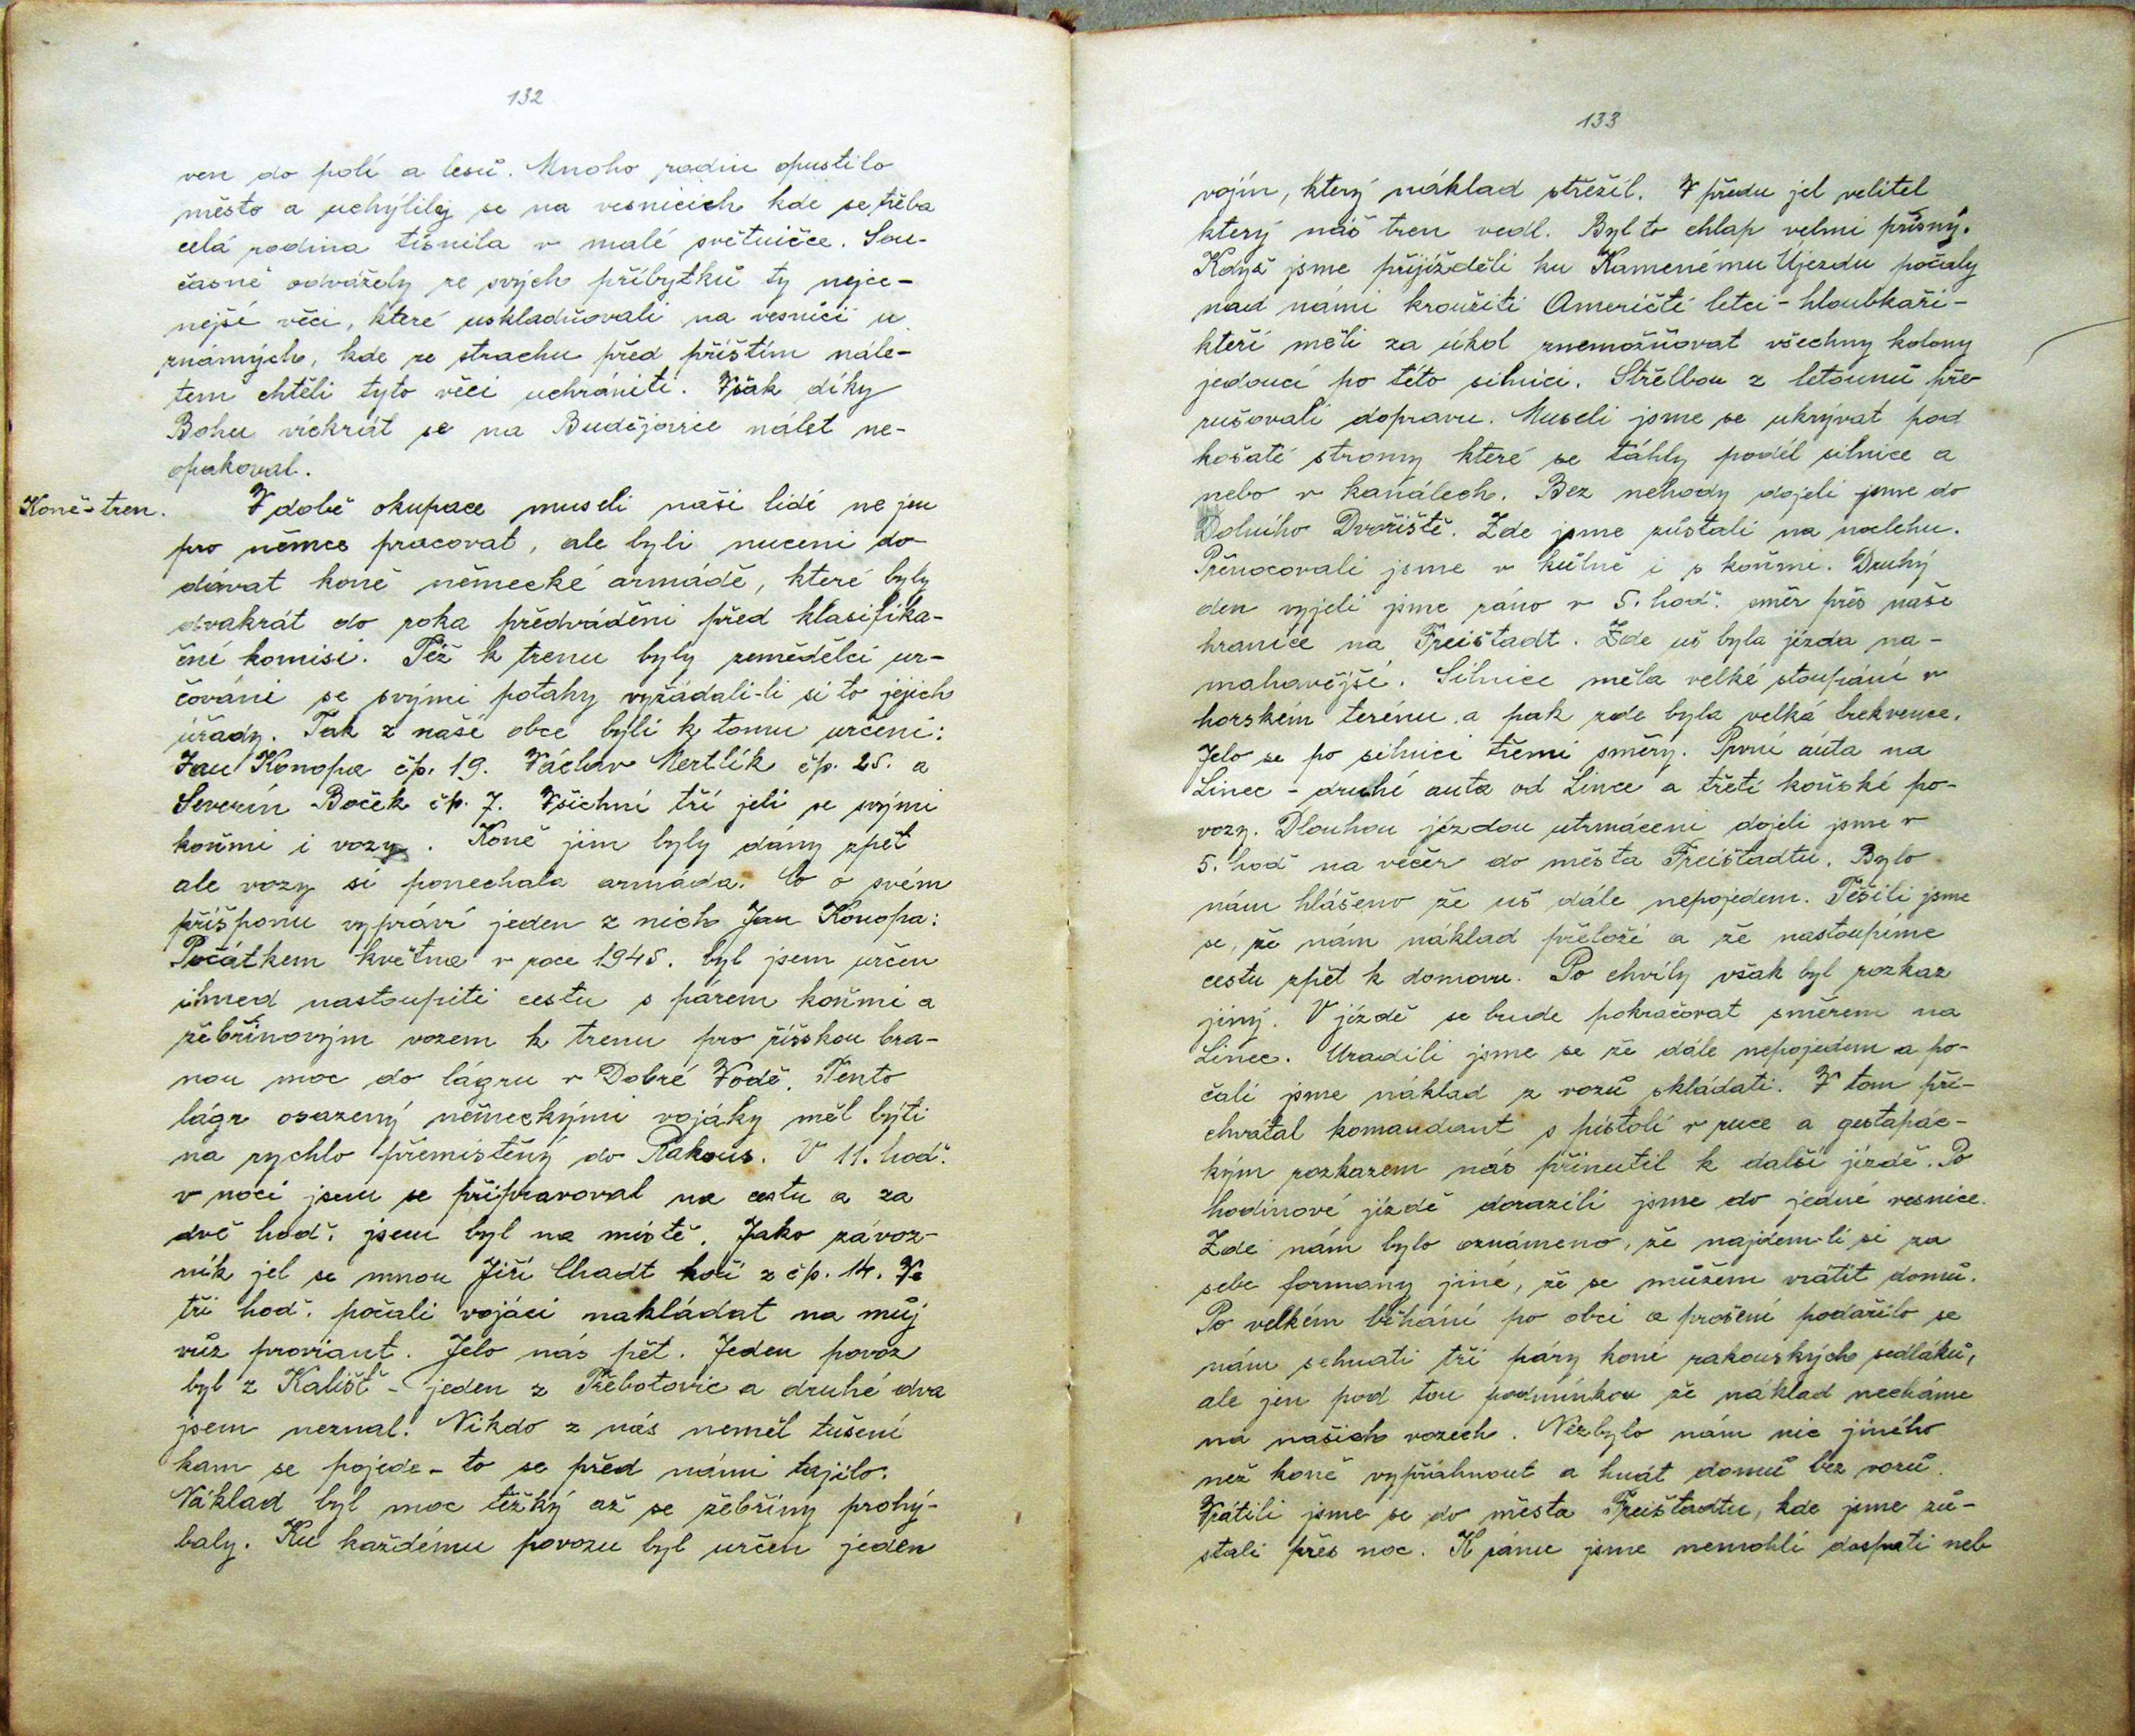 132
ven do polí a lesů. Mnoho rodin opustilo
město a uchýlily se na vesnicích kde se třeba
celá rodina tísnila v malé světničce. Sou-
časně odvážely ze svých příbytků ty nejce-
nejší věci, které uskladňovali na vesnici u
známých, kde ze strachu před příštím nále-
tem chtěli tyto věci uchrániti. Však díky
Bohu víckrát se na Budějovice nálet ne-
opakoval.
Koně-tren.
V době okupace museli naši lidé ne jen
pro němce pracovat, ale byli nuceni do-
dávat koně německé armádě, které byly
dvakrát do roka předváděni před klasifika-
ční komisi. Též k trenu byly zemědělci ur-
čováni se svými potahy vyžádali-li si to jejich
úřady. Tak z naší obce byli k tomu určeni:
Jan Konopa čp. 19. Václav Mertlík čp. 25. a
Severín Boček čp. 7. Všichni tři jeli se svými
koňmi i vozy. Koně jim byly dány zpět
ale vozy si ponechala armáda. Co o svém
příšponu vypráví jeden z nich Jan Konopa:
Počátkem května v roce 1945. byl jsem určen
ihned nastoupiti cestu s párem koňmi a
žebřinovým vozem k trenu pro říšskou bra-
nou moc do lágru v Dobré Vodě. Tento
lágr osazený německými vojáky měl býti
na rychlo přemistěný do Rakous. V 11. hod.
v noci jsem se připravoval na cestu a za
dvě hod. jsem byl na místě. Jako závoz-
ník jel se mnou Jiří Chadt hoši z čp. 14. Ve
tři hod. počali vojáci nakládat na můj
vůz proviant. Jelo nás pět. Jeden povoz
byl z Kališť - jeden z Třebotovic a druhé dva
jsem neznal. Nikdo z nás neměl tušení
kam se pojede - to se před námi tajilo.
Náklad byl moc těžký až se žebřiny prohý-
baly. Ku každému povozu byl určen jeden
133
vojín, který náklad střežil. V předu jel velitel
který náš tren vedl. Byl to chlap velmi přísný.
Když jsme přijížděli ku Kamenému Újezdu počaly
nad námi kroužiti Američtí letci - hloubkaři -
kteří měli za úkol znemožňovat všechny kolony
jedoucí po této silnici. Střelbou z letounů pře
rušovali dopravu. Museli jsme se ukrývat pod
košaté stromy které se táhly podél silnice a
nebo v kanálech. Bez nehody dojeli jsme do
Dolního Dvořiště. Zde jsme zůstali na noclehu.
Přenocovali jsme v kůlně i s koňmi. Druhý
den vyjeli jsme ráno v 5. hod. směr přes naše
hranice na Freištadt. Zde už byla jízda na-
mahavější. Silnice měla velké stoupání v
horském terénu a pak zde byla velká frekvence.
Jelo se po silnici třemi směry. První auta na
Linec - druhé auta od Lince a třetí koňské po-
vozy. Dlouhou jízdou utrmáceni dojeli jsme v
5. hod na večer do města Freištadtu. Bylo
nám hlášeno že už dále nepojedem. Těšili jsme
se, že nám náklad přeloží a že nastoupíme
cestu zpět k domovu. Po chvíly však byl rozkaz
jiný. V jízdě se bude pokračovat směrem na
Linec. Uradili jsme se že dále nepojedem a po-
čali jsme náklad z vozů skládati. V tom při-
chvátal komandant s pistolí v ruce a gestapác-
kým rozkazem nás přinutil k další jízdě. Po
hodinové jízdě dorazili jsme do jedné vesnice.
Zde nám bylo oznámeno, že najdem-li si za
sebe formany jiné, že se můžem vrátit domů.
Po velkém běhání po obci a prošení podařilo se
nám sehnati tři páry koní rakouských sedláků,
ale jen pod tou podmínkou že náklad necháme
na našich vozech. Nezbylo nám nic jiného
než koně vypřáhnout a hnát domů bez vozů.
Vrátili jsme se do města Freištadtu, kde jsme zů-
stali přes noc. K ránu jsme nemohli dospati neb